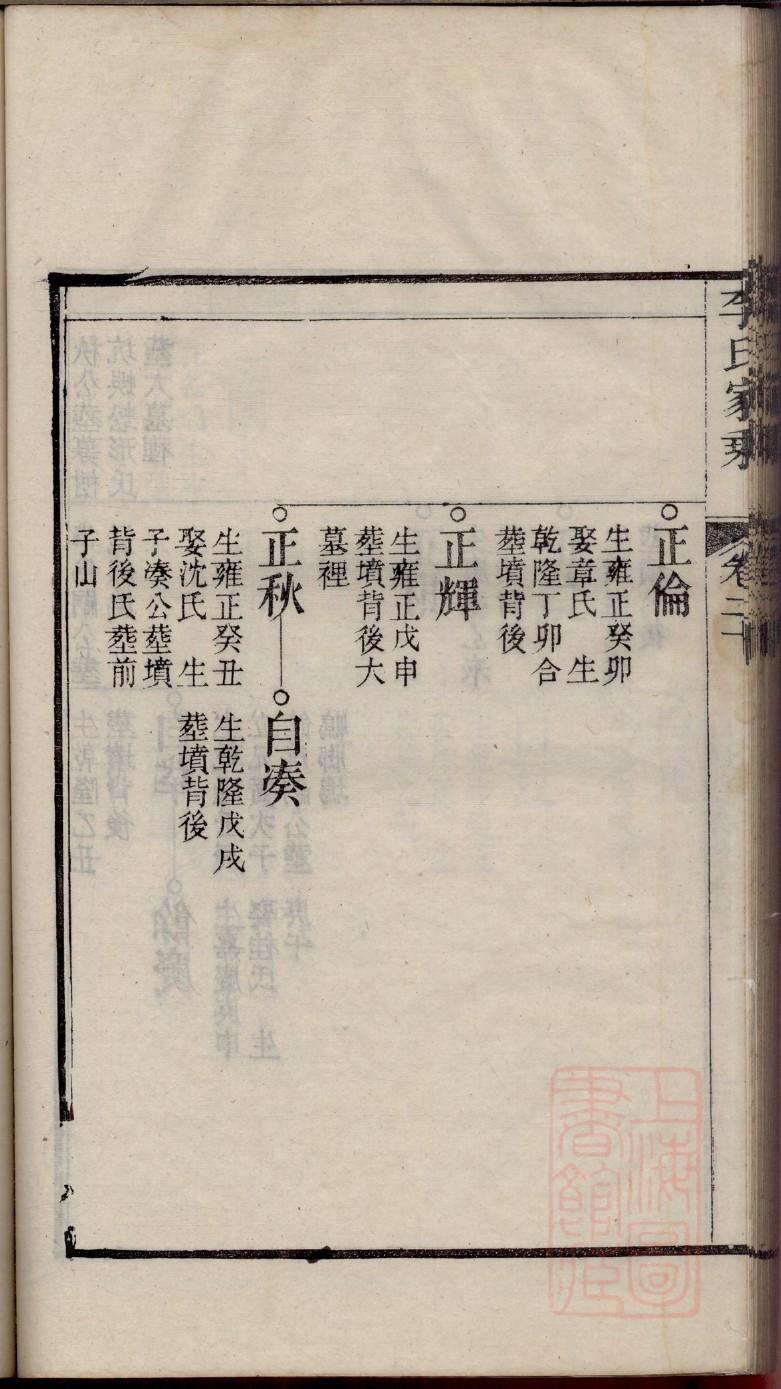 李氏家乘
卷二十
正倫
生雍正癸卯
娶章氏 生
乾隆丁卯合
塟墳背後
正輝
生雍正戊申
塟墳背後大
墓裡
正秋
生雍正癸丑
娶沈氏 生
子湊公塟墳
背後氏塟前
子山
自湊
生乾隆戊戌
塟墳背後
上海圖
書館藏